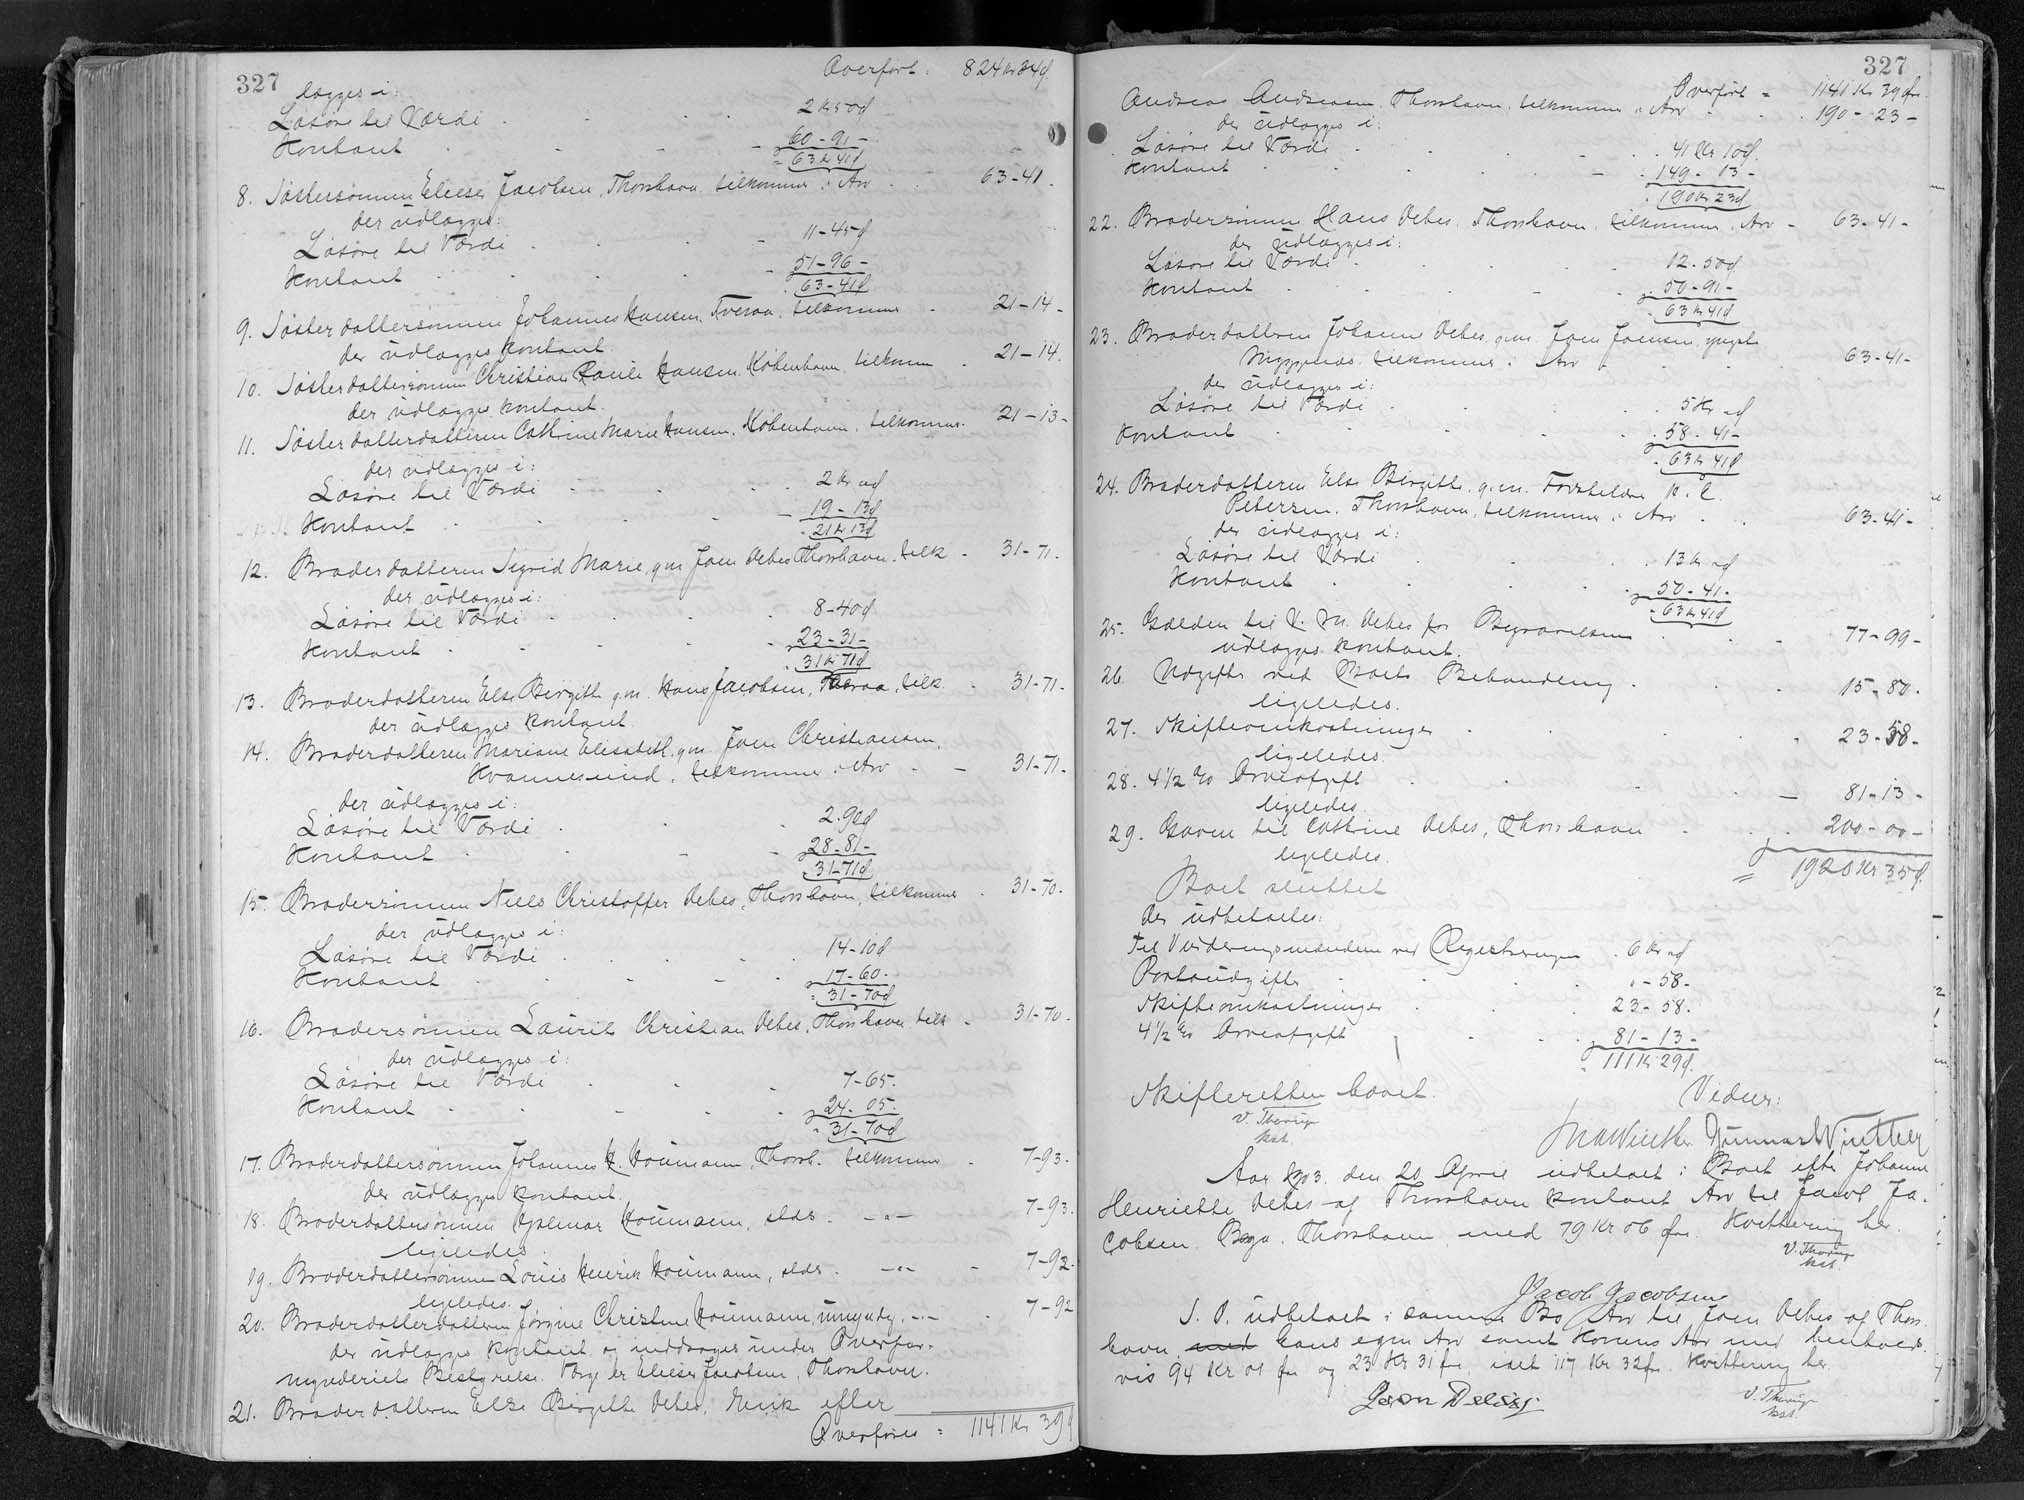 327
Overført: 824 Kr 34 ø
lægges i:
Løsøre til Værdi 2 Kr 50 ø
Kontant 60-91-
63 Kr 41 ø
8. Søstersønnen Elieser Jacobsen, Thorshavn, tilkommer i Arv 63-41.
der udlægges:
Løsøre til Værdi 11-45 ø
Kontant 51-96-
63-41 ø
9. Søsterdattersønnen Johannes Hansen, Tveraa, tilkommer 21-14-
der udlægges kontant
10. Søsterdattersønnen Christian Hansen, København, tilkomm 21-14.
der udlægges kontant.
11. Søsterdatterdatteren Cathrine Marie Hansen, København, tilkommer. 21-13-
der udlægges i:
Løsøre til Værdi 2 Kr "ø
Kontant 19-13 ø
21 Kr 13 ø
12. Broderdatteren Sigrid Marie, gm Joen Debes Thorshavn, tilk 31-71.
der udlægges i:
Løsøre til Værdi 8-40 ø
Kontant 23-31-
31 Kr 71 ø
13. Broderdatteren Else Birgitte gm. Hans Jacobsen, Tveraa, tilk. 31-71.
der udlægges kontant
14. Broderdatteren Mariane Elisabeth, gm Joen Christiansen,
Kvannesund, tilkommer i Arv 31-71-
der udlægges i:
Løsøre til Værdi 2.90 ø
Kontant 28-81-
31-71 ø
15. Brodersønnen Niels Christoffer Debes, Thorshavn, tilkommer 31-70.
der udlægges i:
Løsøre til Værdi 14-10 ø
Kontant 17-60.
31-70 ø
16. Brodersønnen Laurits Christian Debes, Thorshavn tilk 31-70.
der udlægges i:
Løsøre til Værdi 7-65.
Kontant 24-05.
31-70 ø
17. Broderdattersønnen Johannes H. Houmann, Thorsh. tilkommer 7-93.
der udlægges kontant.
18. Broderdattersønnen Hjalmar Houmann, sldr. -"- 7-93.
ligeledes.
19. Broderdattersønnen Louis Henrik Houmann, sldr. -"- 7-92.
ligeledes.
20. Broderdatterdatteren Jørgine Christine Houmann, umyndg. -"- 7-92
der udlægges kontant og inddrages under Overfor-
mynderiets Bestyrelse. Værge er Elieser Jacobsen, Thorshavn.
21. Broderdatteren Else Birgitte Debes, Enke efter
Overføres = 1141 Kr 39 ø
327
Overført = 1141 Kr 39 Øre.
Andreas Andreasen, Thorshavn, tilkommer i Arv 190-23-
der udlægges i:
Løsøre til Værdi 41 Kr 10 ø.
Kontant 149-13-
190 Kr 23 ø
22. Brodersønnen Hans Debes, Thorshavn, tilkommer i Arv - 63-41-
der udlægges i:
Løsøre til Værdi 12.50 ø
Kontant 50-91-
63 Kr 41 ø
23. Broderdatteren Johanne Debes, gm. Joen Joensen, yngste
tilkommer i Arv 63-41-
der udlægges i:
Løsøre til Værdi 5 Kr "ø
Kontant 58.41-
63 Kr 41 ø
24. Broderdatteren Else Birgitte, g.m. P. C.
Petersen, Thorshavn, tilkommer i Arv 63-41-
der udlægges i:
Løsøre til Værdi 13 Kr "ø
Kontant 50-41-
63 Kr 41 ø
25. Gælden til V. M. Debes for Begravelsen 77-99-
udlægges kontant.
26. Udgifter ved Boets Behandling 15-80.
ligeledes.
27. Skifteomkostninger 23-58-
ligeledes.
28. 4 1/2 % Arveafgift 81-13-
ligeledes
29. Gaven til Cathrine Debes, Thorshavn 200-00-
ligeledes.
1920 Kr 35 ø.
Boet sluttet
Der udbetales:
Til Vurderingsmændene ved Registreringen 6 Kr "ø
Portoudgifter "-58-
Skifteomkostninger 23-58.
4 1/2 % Arveafgift 81-13-
111 Kr 29 ø.
Skifteretten hævet.
V. Thorup
kst.
Vidner:
Gunnar Winther
Aar 1903. den 20 April udbetalt i Boet efter Johanne
Henriette Debes af Thorshavn kontant Arv til Jacob Ja-
cobsen. Thorshavn med 79 Kr 06 Øre. Kvittering her.
V. Thorup
kst.
Jacob Jacobsen
S. D. udbetalt i samme Bo Arv til Joen Debes af Thors-
havn, hans egen Arv samt Konens Arv med henholds-
vis 94 Kr 01 Øre og 23 Kr 31 Øre ialt 117 Kr 32 Øre. Kvittering her.
Joen Debes
V. Thorup
kst.